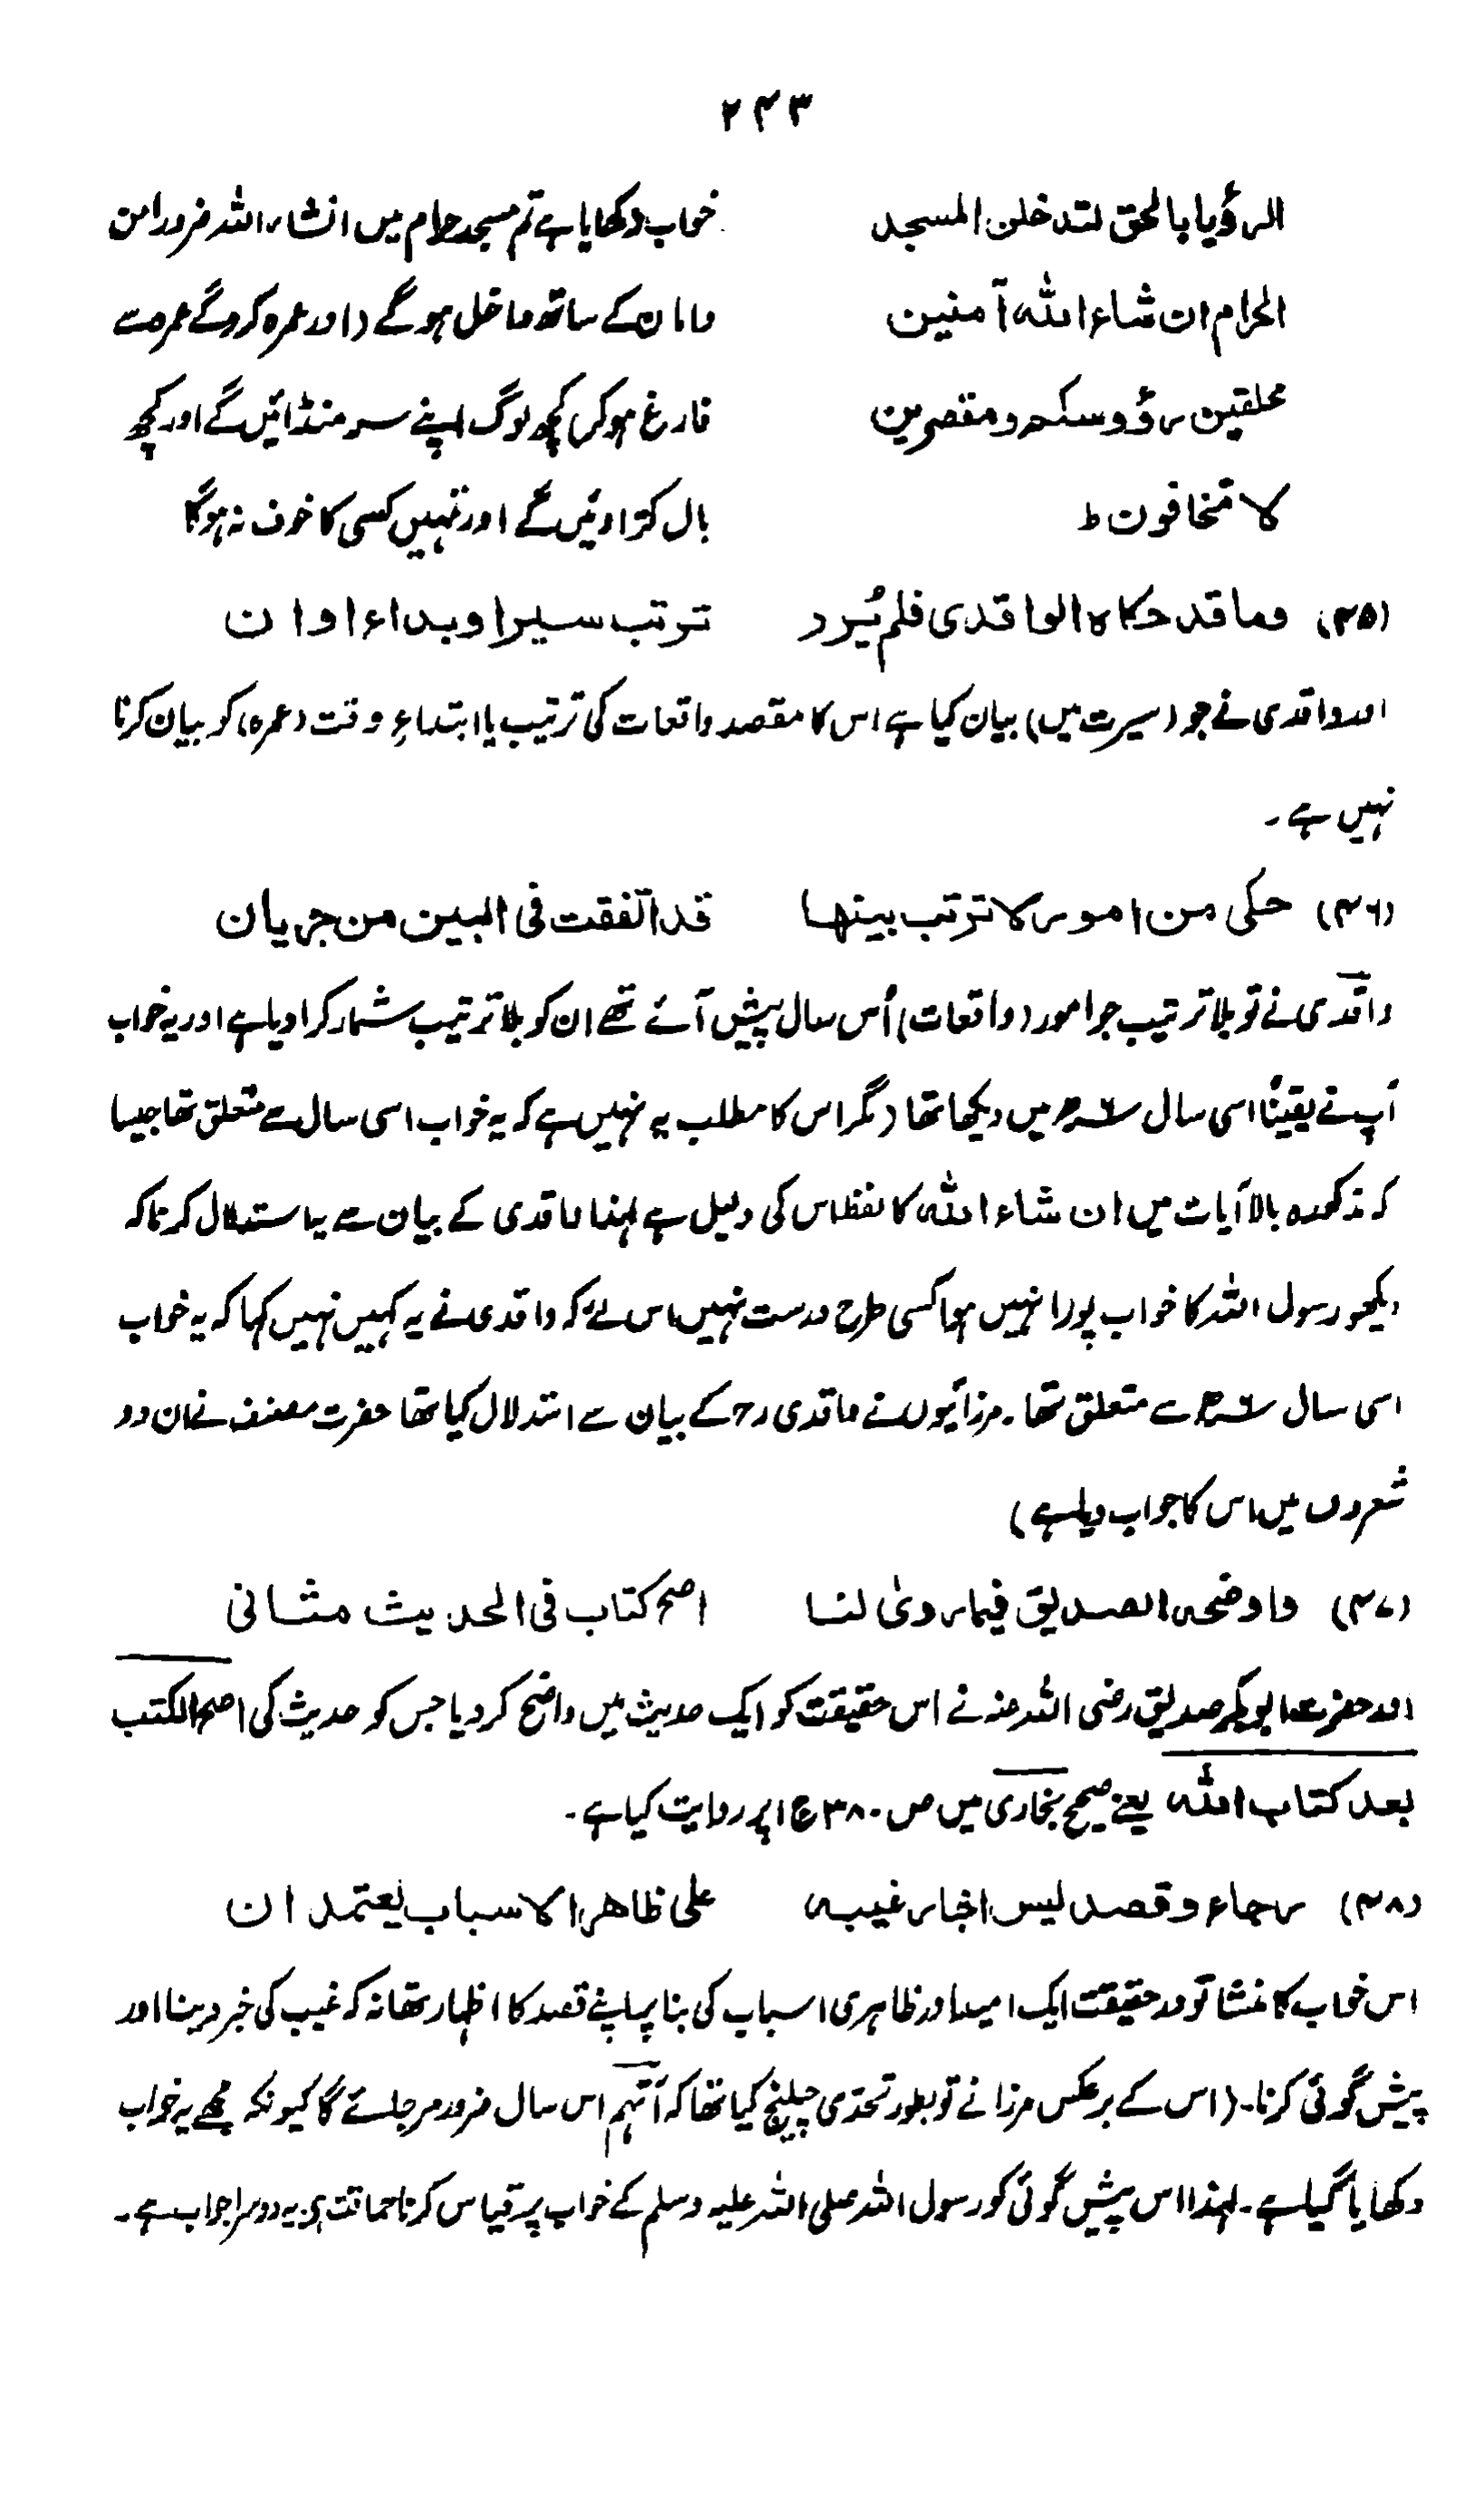 ۲۴۳
الرؤیا بالحق لتدخلن المسجد خواب دکھایا ہے تم مسجد حرام میں انشاء اللہ ضرور امن
الحرام ان شاء اللہ آمنین و امان کے ساتھ داخل ہو گے (اور عمرہ کرو گے عمرہ سے
محلقین رؤوسکم و مقصرین فارغ ہو کر) کچھ لوگ اپنے سر منڈائیں گے اور کچھ
لا تخافون ط بال کتروائیں گے اور تمہیں کسی کا خوف نہ ہوگا
(۳۵) وما قد حکاہ الواقدی فلم یُرد ترتب سیر او بداء اوان
اور واقدی نے جو (سیرت میں) بیان کیا ہے اس کا مقصد واقعات کی ترتیب یا ابتداءِ وقت (عمرہ) کو بیان کرنا
نہیں ہے۔
(۳۶) حکی من امور لا ترتب بینھا قد اتفقت فی البین من جریان
واقدی نے تو بلا ترتیب جو امور (واقعات) اُس سال پیش آئے تھے ان کو بلا ترتیب شمار کرا دیا ہے اور یہ خواب
آپ نے یقینًا اسی سال ۶ھ میں دیکھا تھا (مگر اس کا مطلب یہ نہیں ہے کہ یہ خواب اسی سال سے متعلق تھا جیسا
کہ مذکورہ بالا آیات میں ان شاء اللہ کا لفظ اس کی دلیل ہے لہٰذا واقدی کے بیان سے یہ استدلال کرنا کہ
دیکھو رسول اللہ کا خواب پورا نہیں ہوا کسی طرح درست نہیں اس لئے کہ واقدی نے یہ کہیں نہیں کہا کہ یہ خواب
اسی سال ۶ھ سے متعلق تھا۔ مرزائیوں نے واقدی رح کے بیان سے استدلال کیا تھا حضرت مصنف نے ان دو
شعروں میں اس کا جواب دیا ہے)
(۳۷) واوضحہ الصدیق فیما روی لنا اصح کتاب فی الحدیث مثانی
اور حضرت ابوبکر صدیق رضی اللہ عنہ نے اس حقیقت کو ایک حدیث میں واضح کر دیا جس کو حدیث کی اصح الکتب
بعد کتاب اللہ یعنے صحیح بخاری میں ص ۳۸۰ ج ۱ پر روایت کیا ہے۔
(۳۸) رجاء وقصد لیس اخبار غیبہ علی ظاھر الاسباب یعتمد ان
اس خواب کا منشا تو درحقیقت ایک امید اور ظاہری اسباب کی بنا پر اپنے قصد کا اظہار تھا نہ کہ غیب کی خبر دینا اور
پیش گوئی کرنا۔ (اس کے برعکس مرزا نے تو بطور تحدّی چیلنج کیا تھا کہ آتھم اس سال ضرور مر جائے گا کیونکہ مجھے یہ خواب
دکھایا گیا ہے۔ لہٰذا اس پیش گوئی کو رسول اللہ صلی اللہ علیہ وسلم کے خواب پر قیاس کرنا حماقت ہے) یہ دوسرا جواب ہے۔